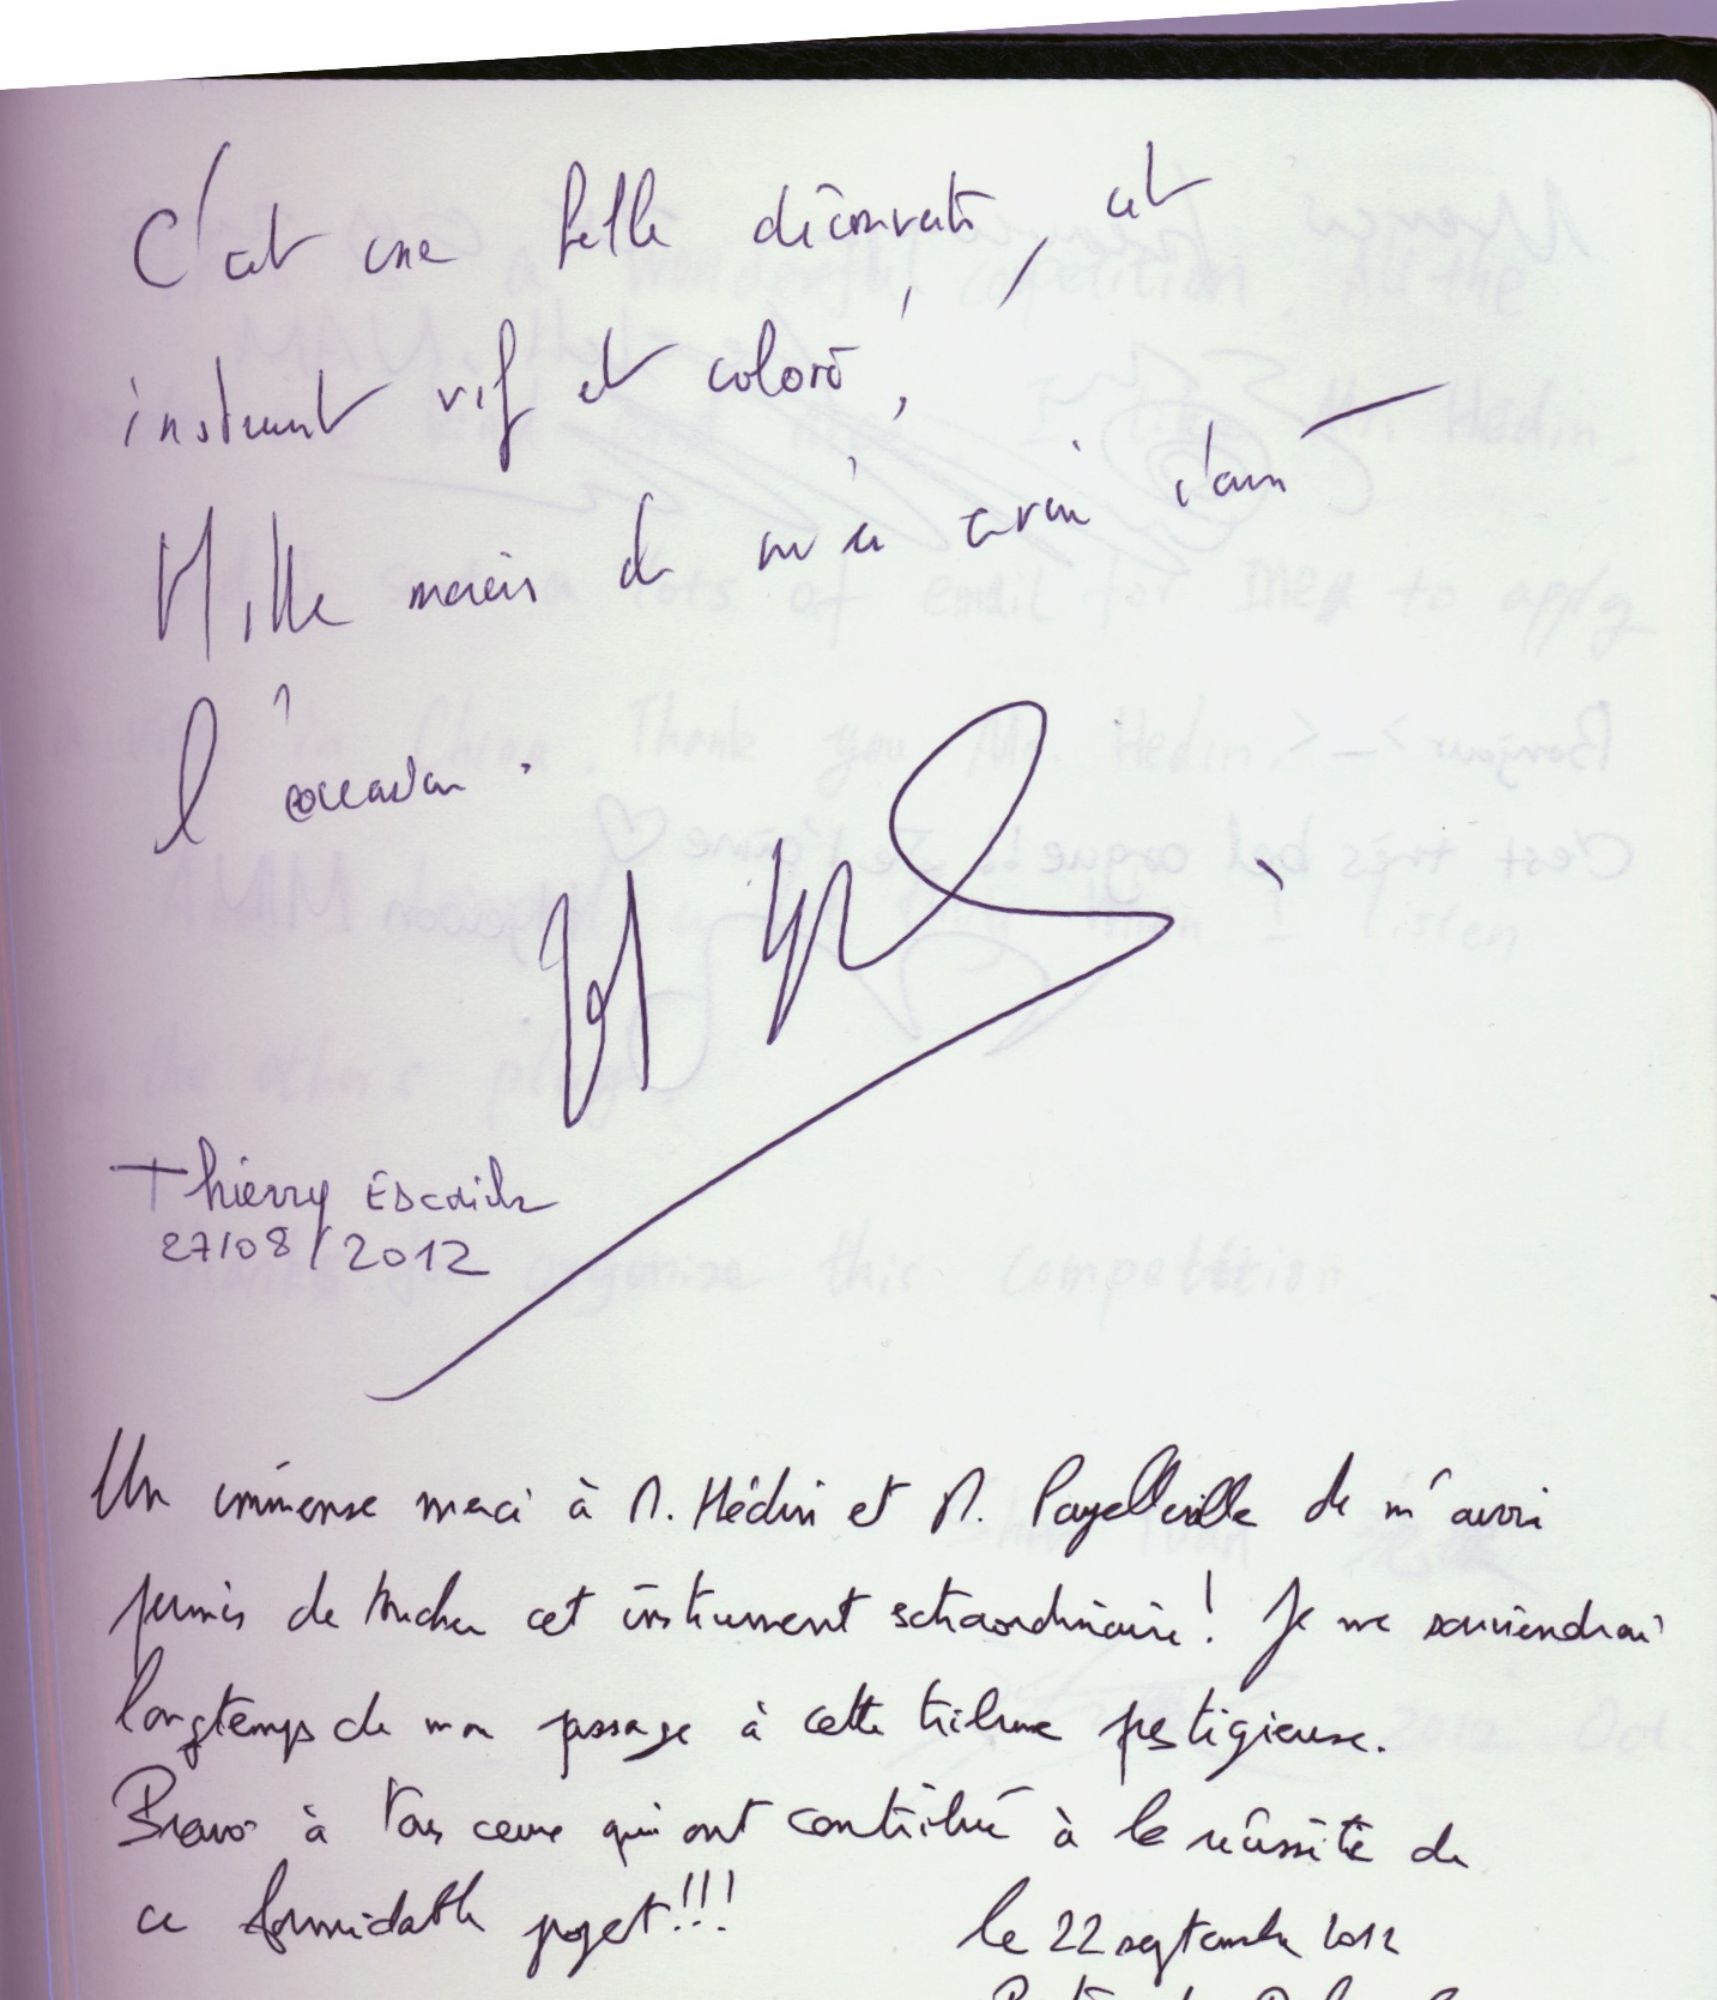 C'est une belle découverte, cet
instrument vif et coloré,
Mille mercis de m'en avoir donné
l'occasion.
Thierry Escaich
27/08/2012
Un immense merci à M. Hédin et M. Payelleville de m'avoir
permis de toucher cet instrument extraordinaire! Je me souviendrai
longtemps de mon passage à cette tribune prestigieuse.
Bravo à tous ceux qui ont contribué à la réussite de
ce formidable projet!!!
le 22 septembre 2012